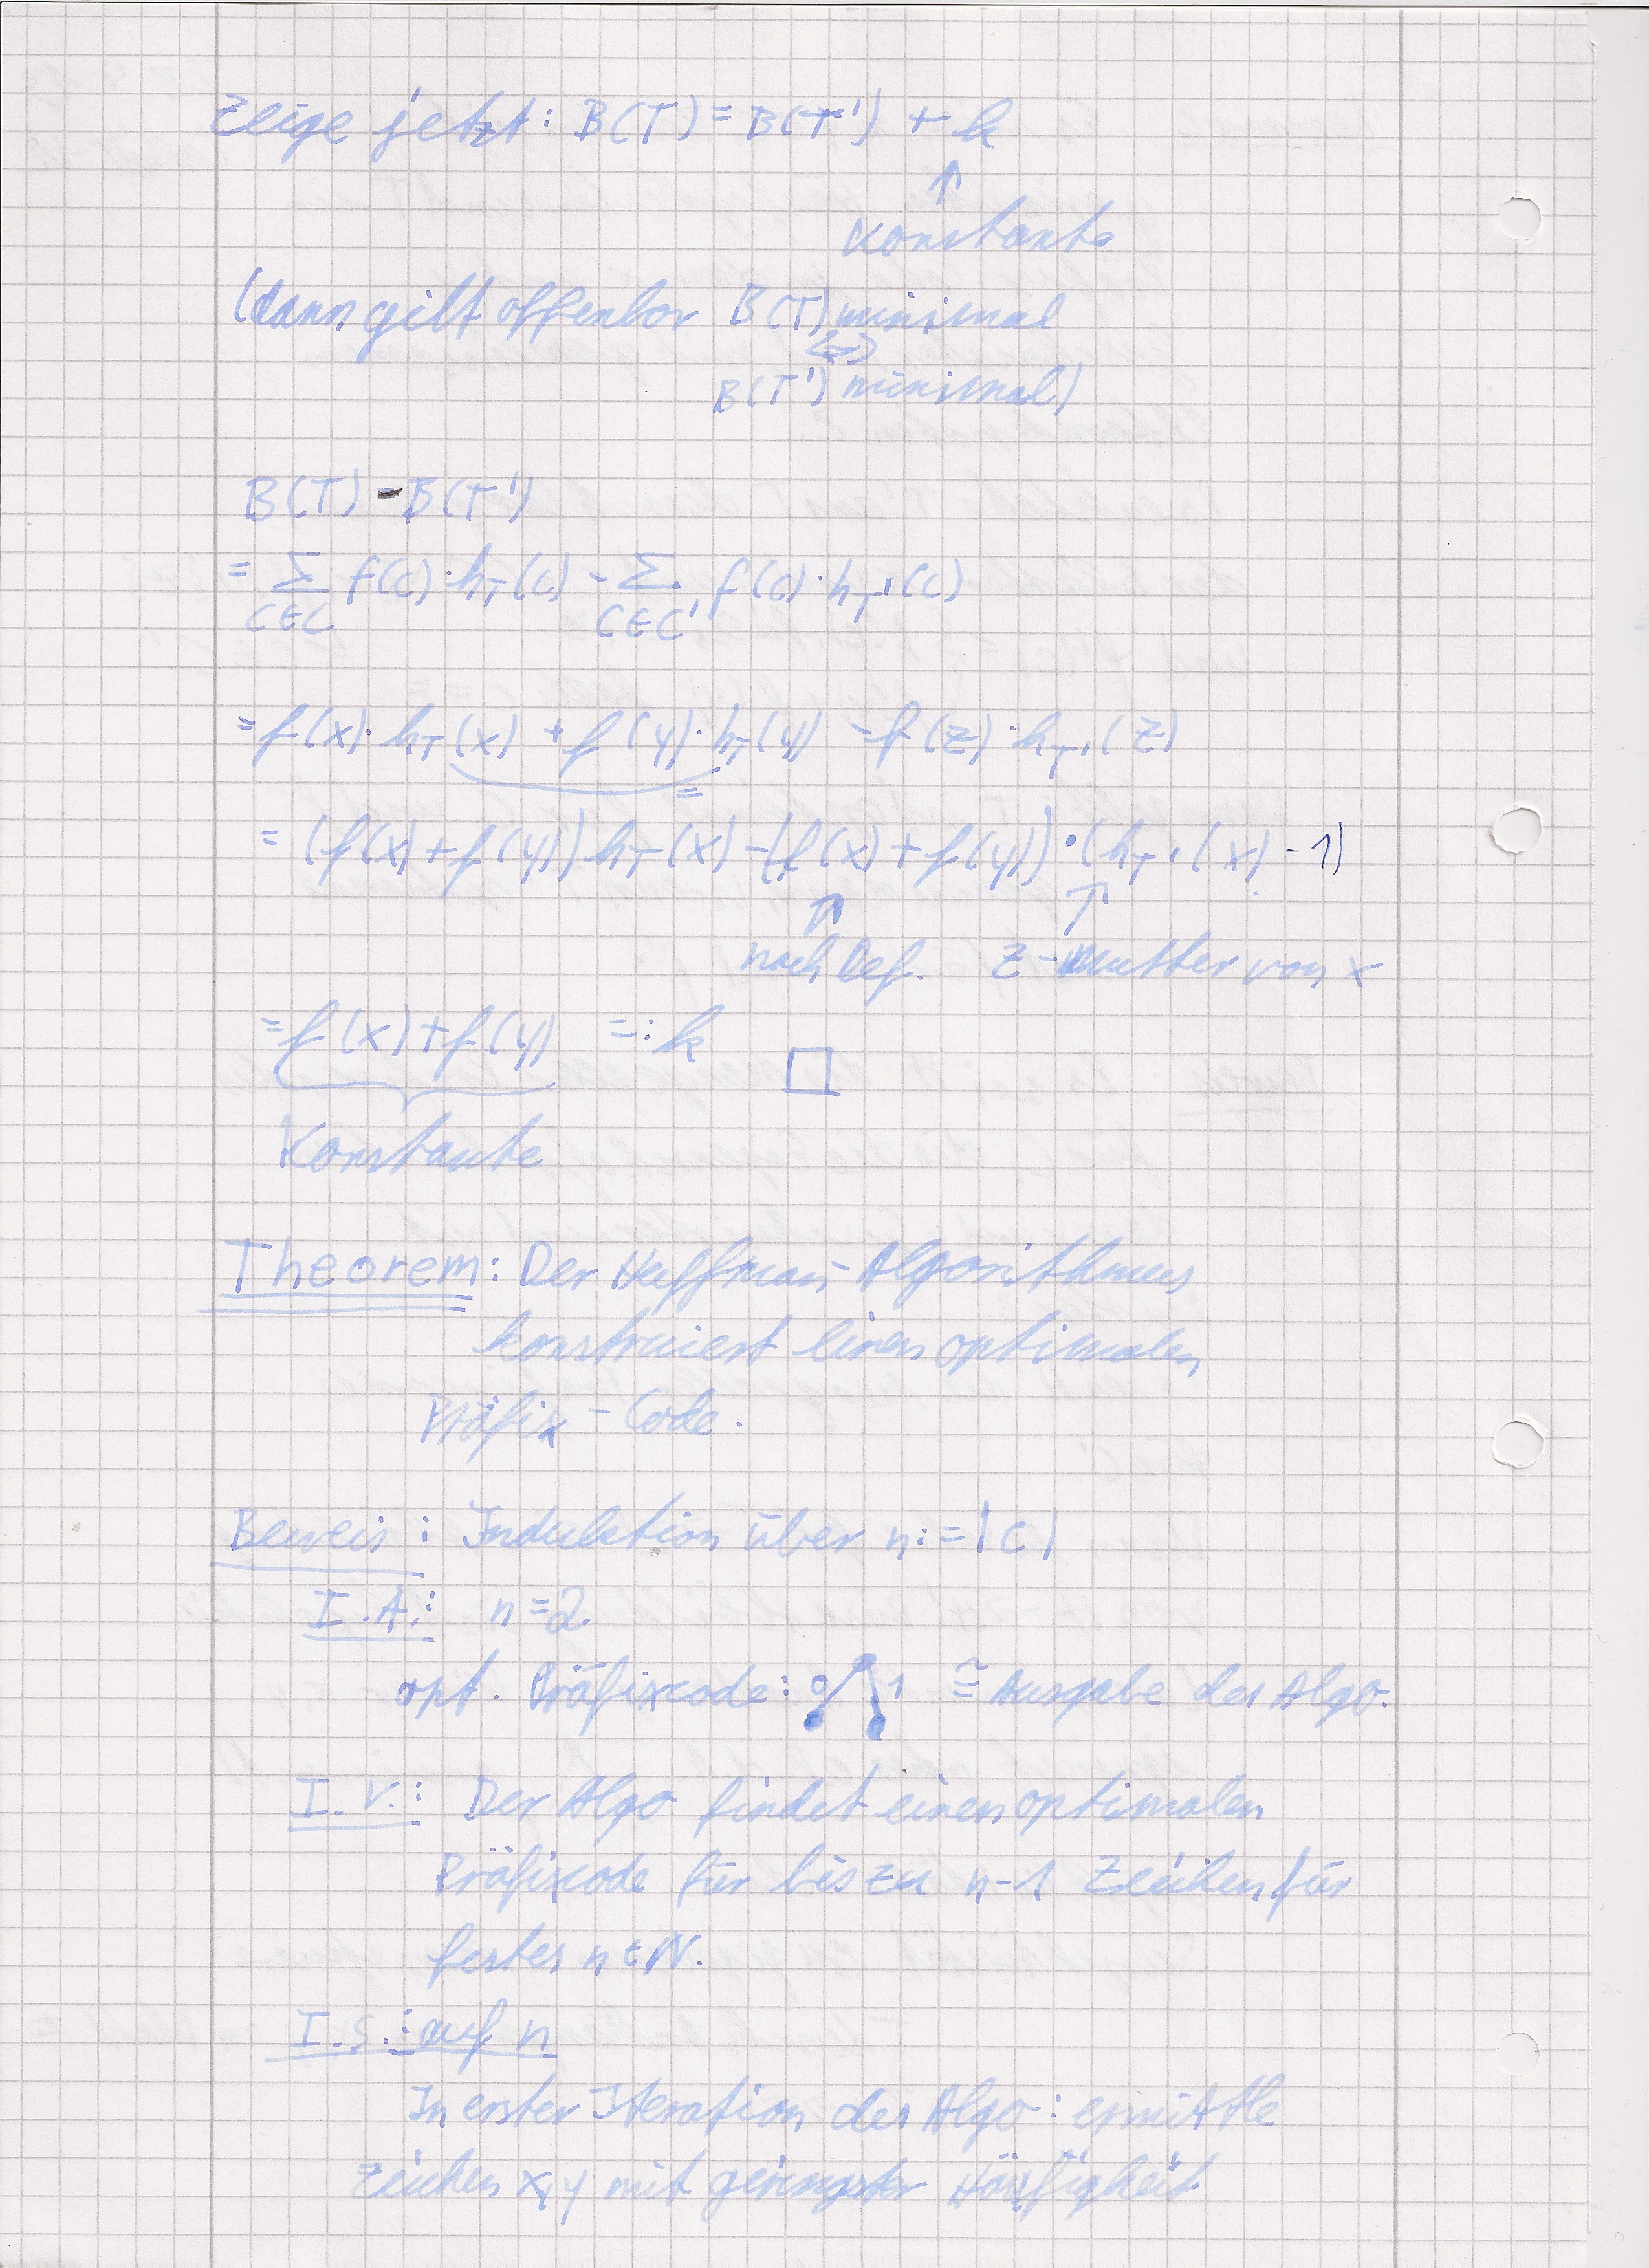 Zeige jetzt: B(T) = B(T') + k
↑
Konstante
(dann gilt offenbar B(T) minimal
<=>
B(T') minimal)
B(T) - B(T')
= ∑ f(c)·h_T(c) - ∑ f(c)·h_T'(c)
c∈C c∈C'
= f(x)·h_T(x) + f(y)·h_T(y) - f(z)·h_T'(z)
=
= (f(x)+f(y)) h_T(x) - (f(x)+f(y))·(h_T'(x) - 1)
↑ ↑
nach Def. z - Mutter von x
= f(x)+f(y) =: k □
Konstante
Theorem: Der Huffman-Algorithmus
konstruiert einen optimalen
Präfix-Code.
Beweis: Induktion über n:=|C|
I.A.: n=2
opt. Präfixcode: 0 1 ≅ Ausgabe des Algo.
I.V.: Der Algo findet einen optimalen
Präfixcode für bis zu n-1 Zeichen für
festes n∈N.
I.S.: auf n
In erster Iteration des Algo: ermittle
Zeichen x,y mit geringster Häufigkeit